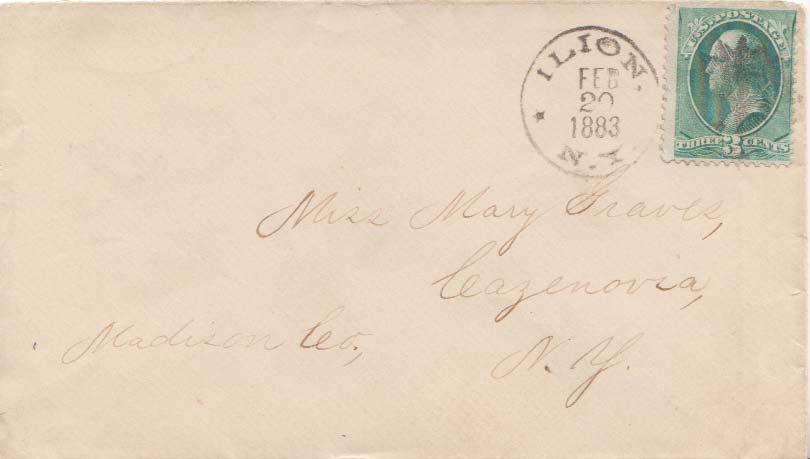 ILION.
FEB
20
1883
N.Y.
U.S. POSTAGE
THREE 3 CENTS
Miss Mary Graves,
Cazenovia,
Madison Co., N.Y.